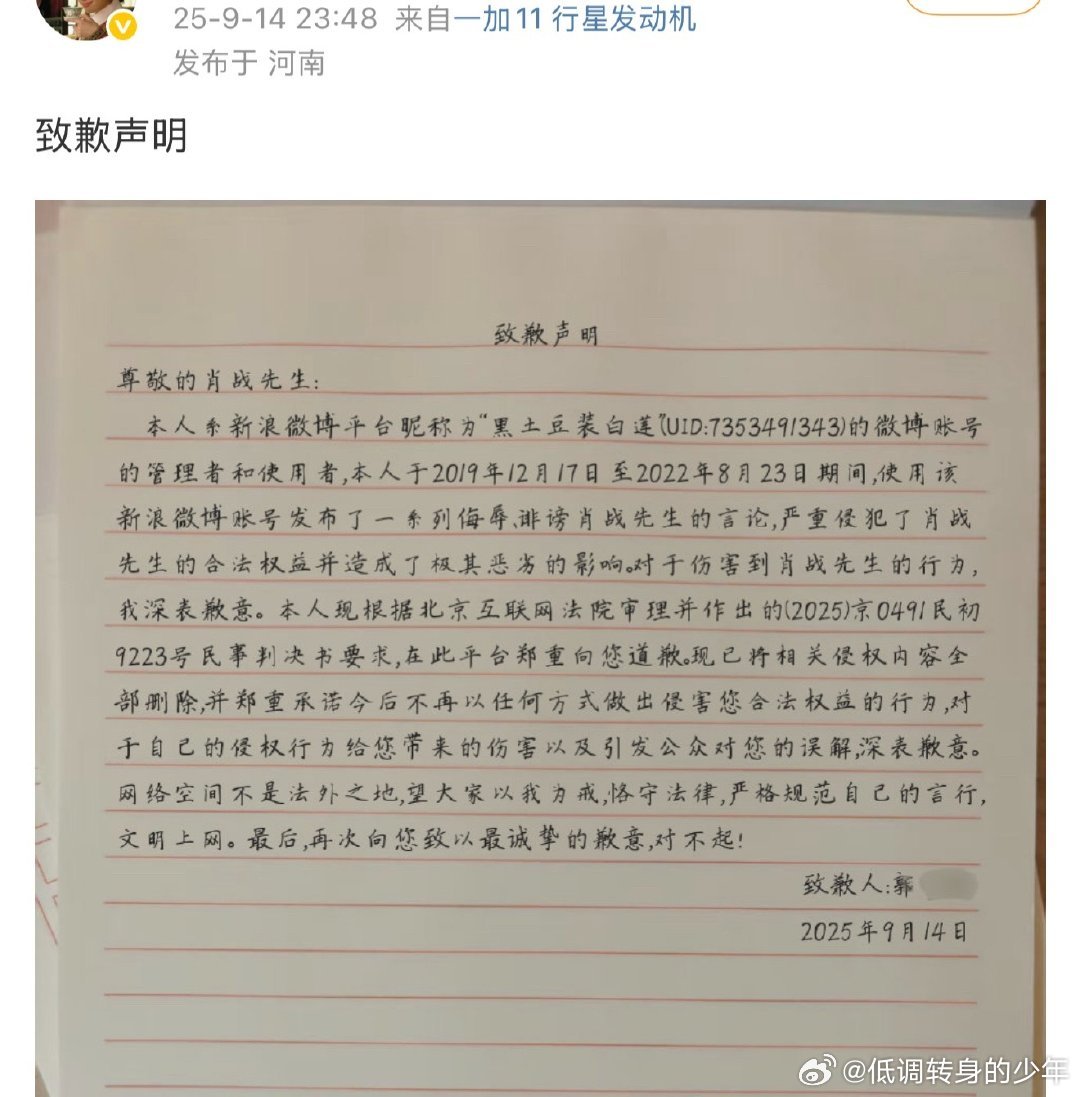 25-9-14 23:48 来自一加11 行星发动机
发布于 河南
致歉声明
致歉声明
尊敬的肖战先生:
本人系新浪微博平台昵称为“黑土豆装白莲”(UID:7353491343)的微博账号
的管理者和使用者,本人于2019年12月17日至2022年8月23日期间,使用该
新浪微博账号发布了一系列侮辱、诽谤肖战先生的言论,严重侵犯了肖战
先生的合法权益并造成了极其恶劣的影响。对于伤害到肖战先生的行为,
我深表歉意。本人现根据北京互联网法院审理并作出的(2025)京0491民初
9223号民事判决书要求,在此平台郑重向您道歉。现已将相关侵权内容全
部删除,并郑重承诺今后不再以任何方式做出侵害您合法权益的行为,对
于自己的侵权行为给您带来的伤害以及引发公众对您的误解,深表歉意。
网络空间不是法外之地,望大家以我为戒,恪守法律,严格规范自己的言行,
文明上网。最后,再次向您致以最诚挚的歉意,对不起!
致歉人:郭
2025年9月14日
@低调转身的少年